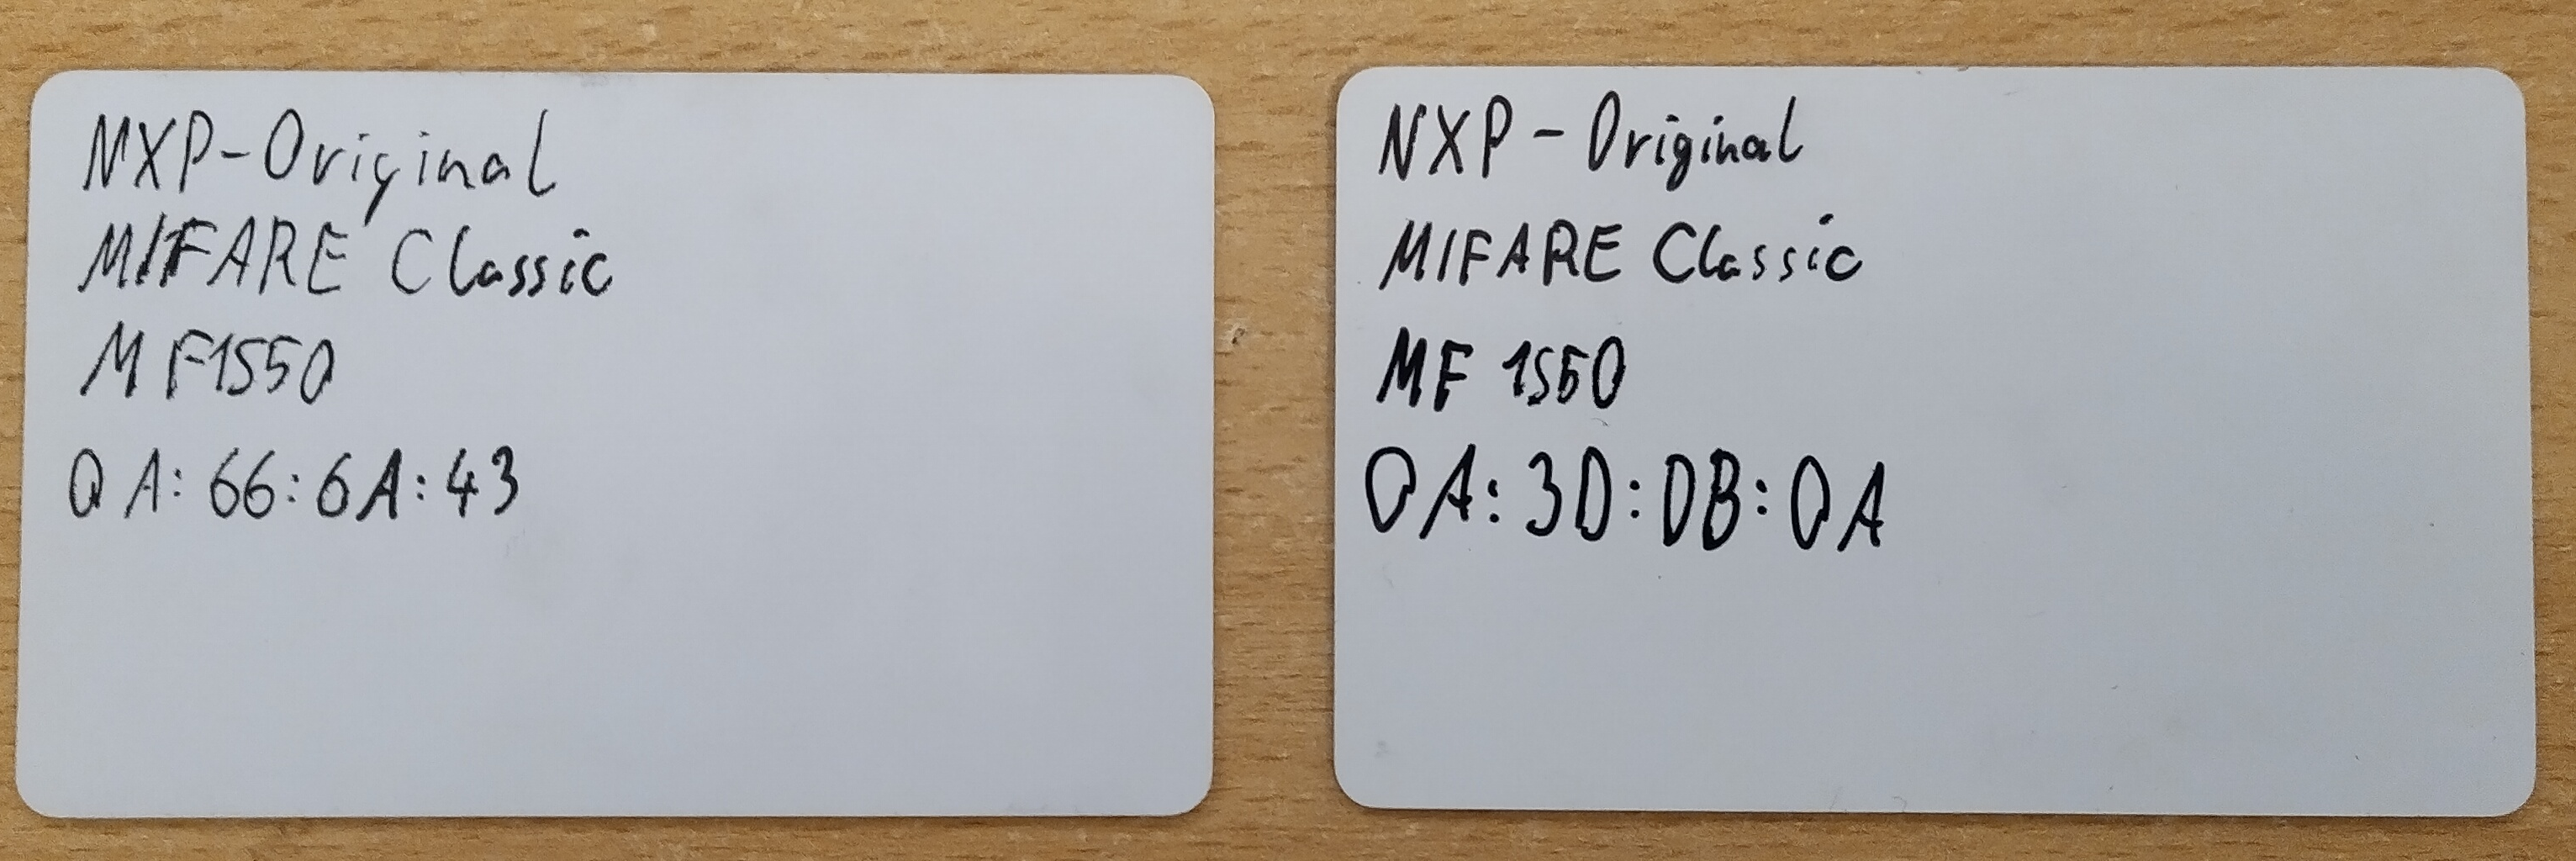 NXP-Original
MIFARE Classic
MF1S50
0A:66:6A:43
NXP-Original
MIFARE Classic
MF 1S50
0A:3D:DB:0A